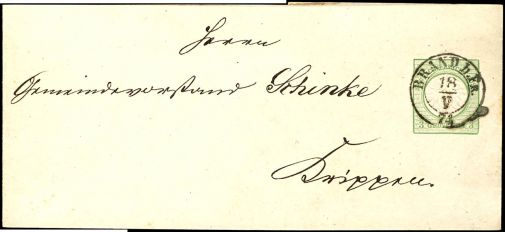 Herrn
Gemeindevorstand Schinke
Krippen.
BRAND
18
V
74